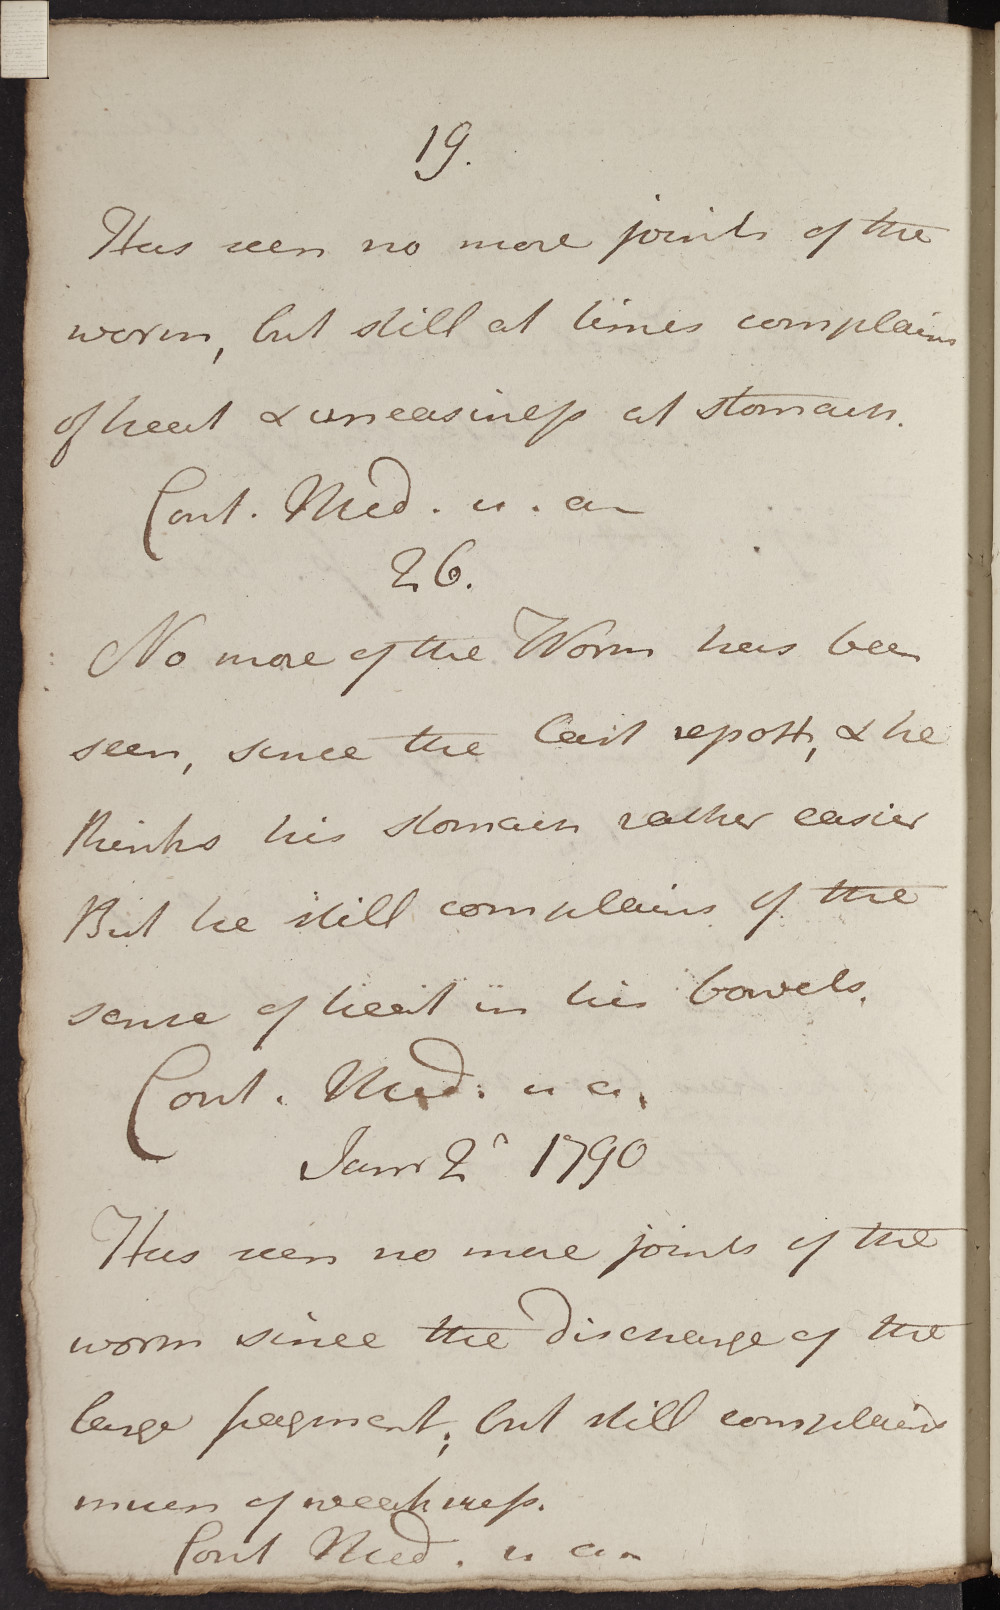 19.
Has seen no more joints of the
worm, but still at times complains
of heat & uneasiness at stomach.
Cont. Med. u. a
26.
No more of the Worm has been
seen, since the last report, & he
thinks his stomach rather easier
But he still complains of the
sense of heat in his bowels.
Cont. Med. u a.
Janr 2d 1790
Has seen no more joints of the
worm since the Discharge of the
large fragment; but still complains
much of weakness.
Cont Med. u a